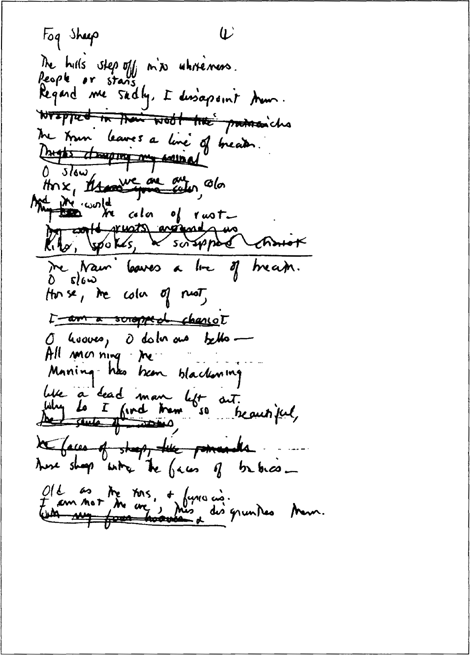 Fog Sheep 4
The hills step off into whiteness.
People or stars
Regard me sadly. I disappoint them.
Wrapped in their wool like patriarchs
The train leaves a line of breath.
Thighs clamping my animal
O slow
Horse, we are one color
And the world
the color of rust—
The world rusts around us
Ribs, spokes, a scrapped chariot
The train leaves a line of breath.
O slow
Horse, the color of rust,
I am a scrapped chariot
O hooves, O dolorous bells—
All morning the
Morning has been blackening
Like a dead man left out.
Why do I find them so beautiful,
The faces of sheep, like patriarchs
These sheep with the faces of babies—
Old as the , & furious.
I am not the one, this disgruntles them.
With my four hooves &